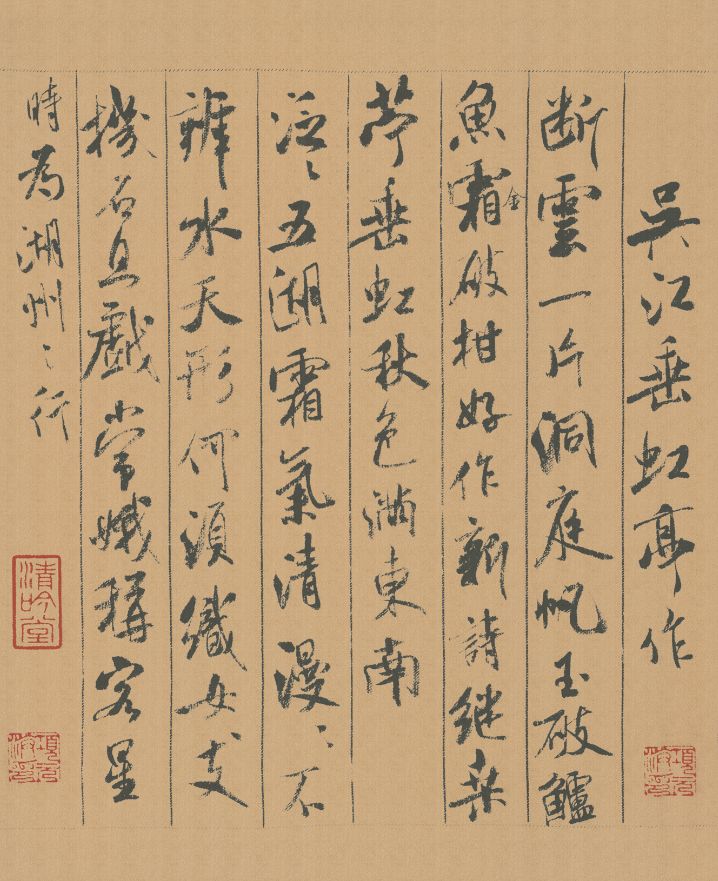 吳江垂虹亭作
項元汴印
断雲一片洞庭帆玉破鱸
魚霜金破柑好作新詩継桒
苧垂虹秋色滿東南
泛〻五湖霜氣清漫〻不
辨水天形何須織女支
機石且戲常娥稱客星
時為湖州之行
清吟堂
項元汴印